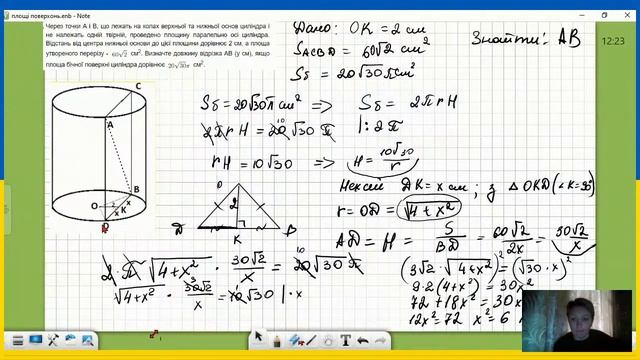 площі поверхонь.enb - Note
Через точки A і B, що лежать на колах верхньої та нижньої основ циліндра і
не належать одній твірній, проведено площину паралельно осі циліндра.
Відстань від центра нижньої основи до цієї площини дорівнює 2 см, а площа
утвореного перерізу - 60√2 см². Визначте довжину відрізка AB (у см), якщо
площа бічної поверхні циліндра дорівнює 20√30π см².
Дано: OK = 2 см
S ACBD = 60√2 см²
Sб = 20√30π см²
Знайти: AB
12:23
Sб = 20√30π см² => Sб = 2πrH
2πrH = 20√30 π |: 2π
10
rH = 10√30 => H = 10√30/r
Нехай DK = x см; з △OKD (∠K=90°)
r = OD = √4+x²
AD = H = S/BD = 60√2/2x = 30√2/x
2·π·√4+x² · 30√2/x = 20√30 π
10
√4+x² · 30√2/x = 10√30 | · x
3
(3√2 · √4+x²)² = (√30 · x)²
9·2(4+x²) = 30x²
72+18x² = 30x
12x² = 72 x² = 6
C
A
B
O
2
x
K
x
D
O
2
D
K
B